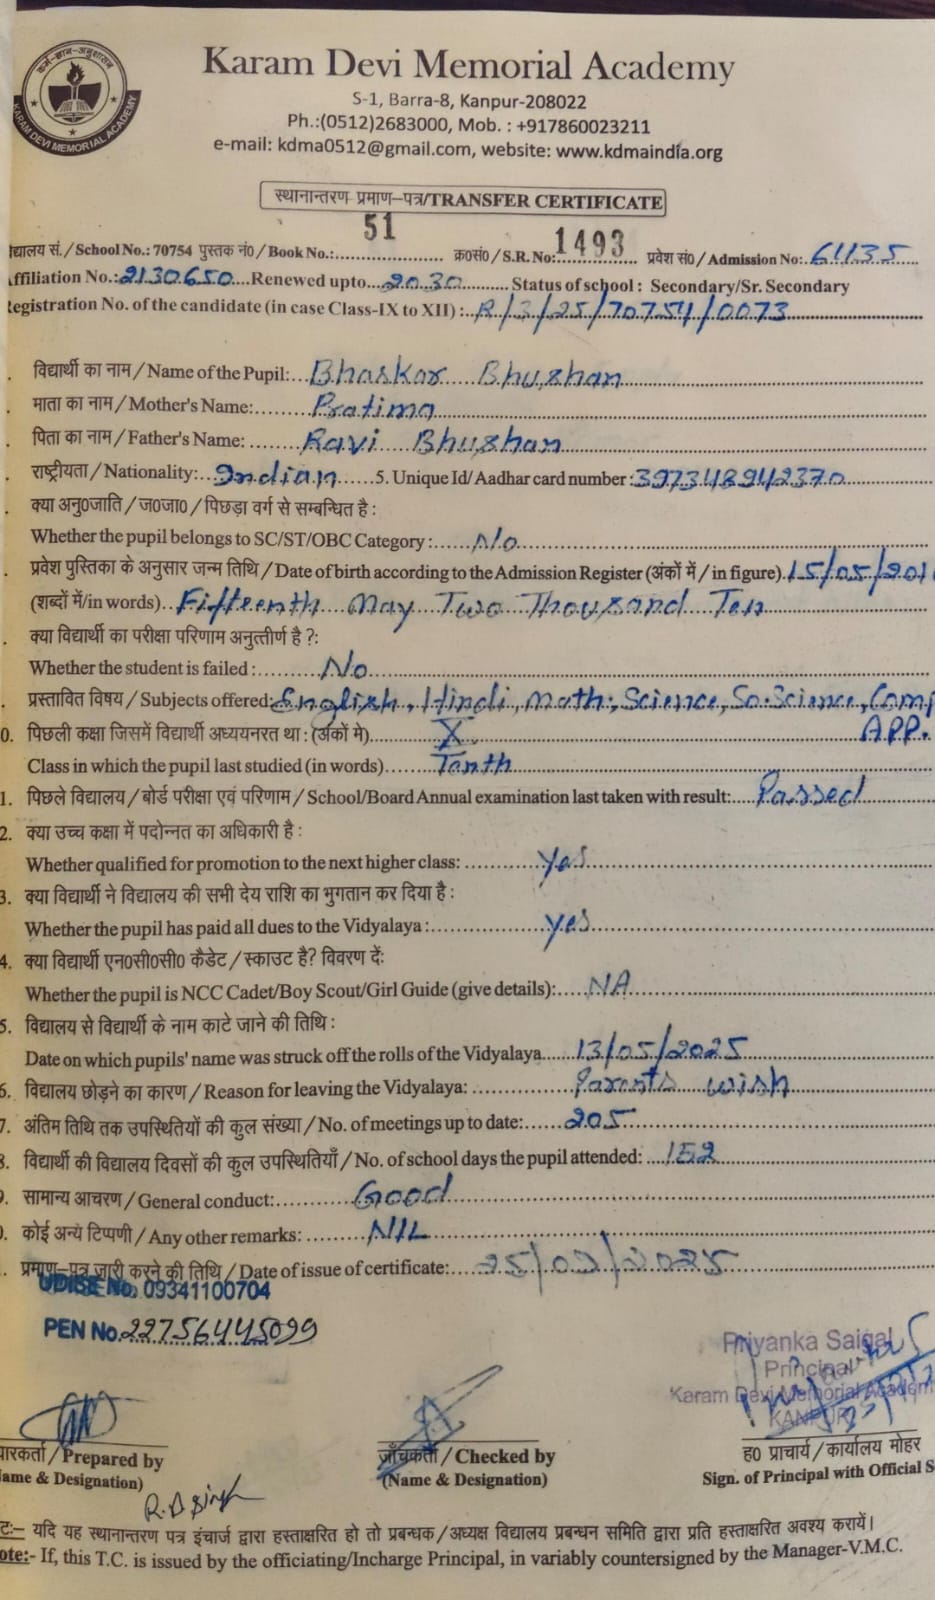 कर्म-ज्ञान-अनुशासन
KARAM DEVI MEMORIAL ACADEMY
Karam Devi Memorial Academy
S-1, Barra-8, Kanpur-208022
Ph.:(0512)2683000, Mob. : +917860023211
e-mail: kdma0512@gmail.com, website: www.kdmaindia.org
स्थानान्तरण प्रमाण-पत्र/TRANSFER CERTIFICATE
द्यालय सं./School No.: 70754 पुस्तक नं०/Book No.: 51 क्र०सं०/S.R. No: 1493 प्रवेश सं०/Admission No: 61135
ffiliation No.: 2130650 Renewed upto 2030 Status of school : Secondary/Sr. Secondary
egistration No. of the candidate (in case Class-IX to XII) : R/3/25/70754/0073
. विद्यार्थी का नाम/Name of the Pupil: Bhaskar Bhushan
. माता का नाम/Mother's Name: Pratima
. पिता का नाम/Father's Name: Ravi Bhushan
. राष्ट्रीयता/Nationality: Indian 5. Unique Id/Aadhar card number: 397348942370
. क्या अनु०जाति/ज०जा०/पिछड़ा वर्ग से सम्बन्धित है :
Whether the pupil belongs to SC/ST/OBC Category : No
. प्रवेश पुस्तिका के अनुसार जन्म तिथि/Date of birth according to the Admission Register (अंकों में/in figure) 15/05/201
(शब्दों में/in words) Fifteenth May Two Thousand Ten
. क्या विद्यार्थी का परीक्षा परिणाम अनुत्तीर्ण है ?:
Whether the student is failed : No
. प्रस्तावित विषय/Subjects offered: English, Hindi, Math, Science, So.Science, Comp
APP.
0. पिछली कक्षा जिसमें विद्यार्थी अध्ययनरत था : (अंकों मे) X
Class in which the pupil last studied (in words) Tenth
1. पिछले विद्यालय/बोर्ड परीक्षा एवं परिणाम/School/Board Annual examination last taken with result: Passed
2. क्या उच्च कक्षा में पदोन्नत का अधिकारी है :
Whether qualified for promotion to the next higher class: yes
3. क्या विद्यार्थी ने विद्यालय की सभी देय राशि का भुगतान कर दिया है :
Whether the pupil has paid all dues to the Vidyalaya : yes
4. क्या विद्यार्थी एन०सी०सी० कैडेट/स्काउट है? विवरण दें:
Whether the pupil is NCC Cadet/Boy Scout/Girl Guide (give details): NA
5. विद्यालय से विद्यार्थी के नाम काटे जाने की तिथि :
Date on which pupils' name was struck off the rolls of the Vidyalaya 13/05/2025
6. विद्यालय छोड़ने का कारण/Reason for leaving the Vidyalaya: Parents wish
7. अंतिम तिथि तक उपस्थितियों की कुल संख्या/No. of meetings up to date: 205
8. विद्यार्थी की विद्यालय दिवसों की कुल उपस्थितियाँ/No. of school days the pupil attended: 152
9. सामान्य आचरण/General conduct: Good
0. कोई अन्य टिप्पणी/Any other remarks: NIL
. प्रमाण-पत्र जारी करने की तिथि/Date of issue of certificate:
UDISE No. 09341100704
PEN No. 22756445099
Priyanka Saigal
Principal
Karam Devi Memorial Academ
KANPUR
ारकर्ता/Prepared by
ame & Designation)
R.D Singh
जाँचकर्ता/Checked by
(Name & Designation)
ह० प्राचार्य/कार्यालय मोहर
Sign. of Principal with Official S
टः- यदि यह स्थानान्तरण पत्र इंचार्ज द्वारा हस्ताक्षरित हो तो प्रबन्धक/अध्यक्ष विद्यालय प्रबन्धन समिति द्वारा प्रति हस्ताक्षरित अवश्य करायें।
ote:- If, this T.C. is issued by the officiating/Incharge Principal, in variably countersigned by the Manager-V.M.C.